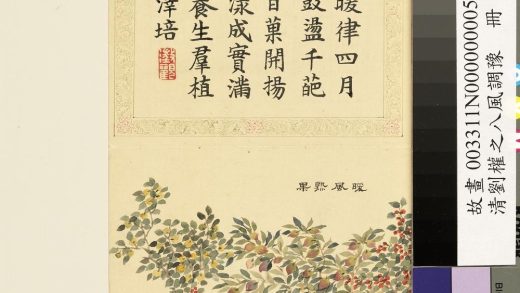 暖律四月
鼓盪千葩
百菓開揚
成實滿
養生羣植
澤培
暖風熟果
故畫 003311N000000005
清劉權之八風調豫 冊